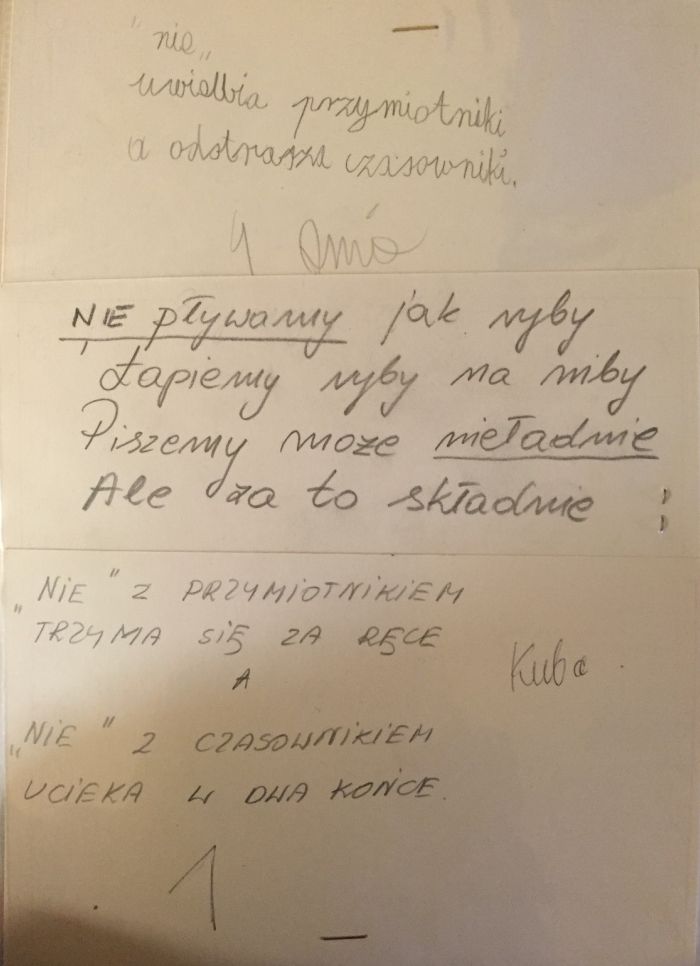 "nie„
uwielbia przymiotniki
a odstrasza czasowniki.
4
NIE pływamy jak ryby
Łapiemy ryby na niby
Piszemy może nieładnie
Ale za to składnie
„NiE" Z PRZYMIOTNIKIEM
TRZYMA SiĘ ZA RĘCE
Kuba
A
„NIE" Z CZASOWNIKIEM
UCIEKA W DWA KOŃCE.
1